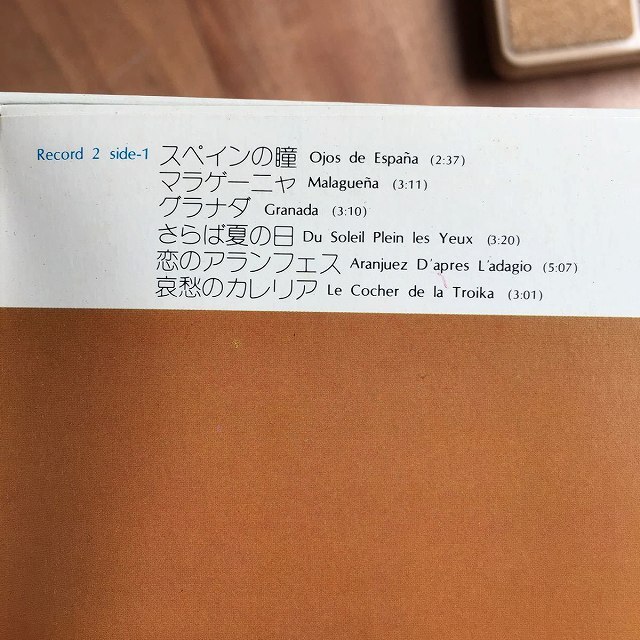 Record 2 side-1 スペインの瞳 Ojos de España (2:37)
マラゲーニャ Malagueña (3:11)
グラナダ Granada (3:10)
さらば夏の日 Du Soleil Plein les Yeux (3:20)
恋のアランフェス Aranjuez D'apres L'adagio (5:07)
哀愁のカレリア Le Cocher de la Troika (3:01)